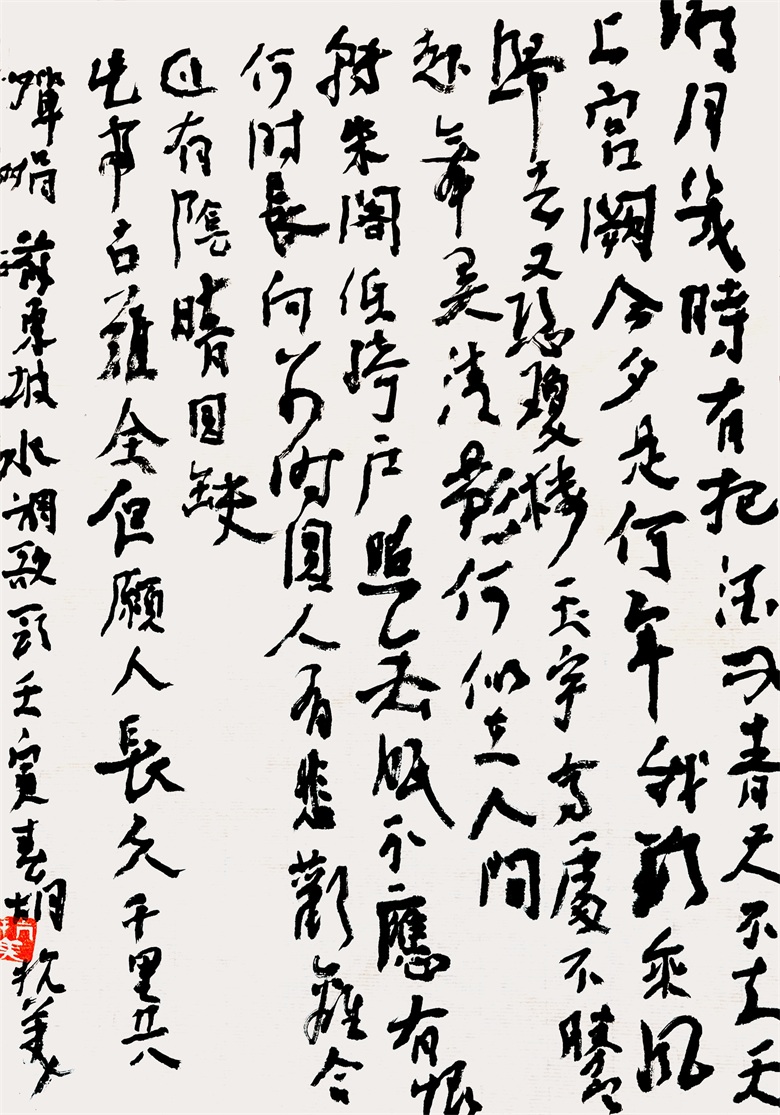 明月幾時有把酒問青天不知天
上宮闕今夕是何年我欲乘風
歸去又恐瓊樓玉宇高處不勝寒
起舞弄清影何似在人間
轉朱閣低綺戶照無眠不應有恨
何時長向別時圓人有悲歡離合
月有陰晴圓缺
此事古難全但願人長久千里共
嬋娟 蘇東坡水調歌頭壬寅春胡抗美